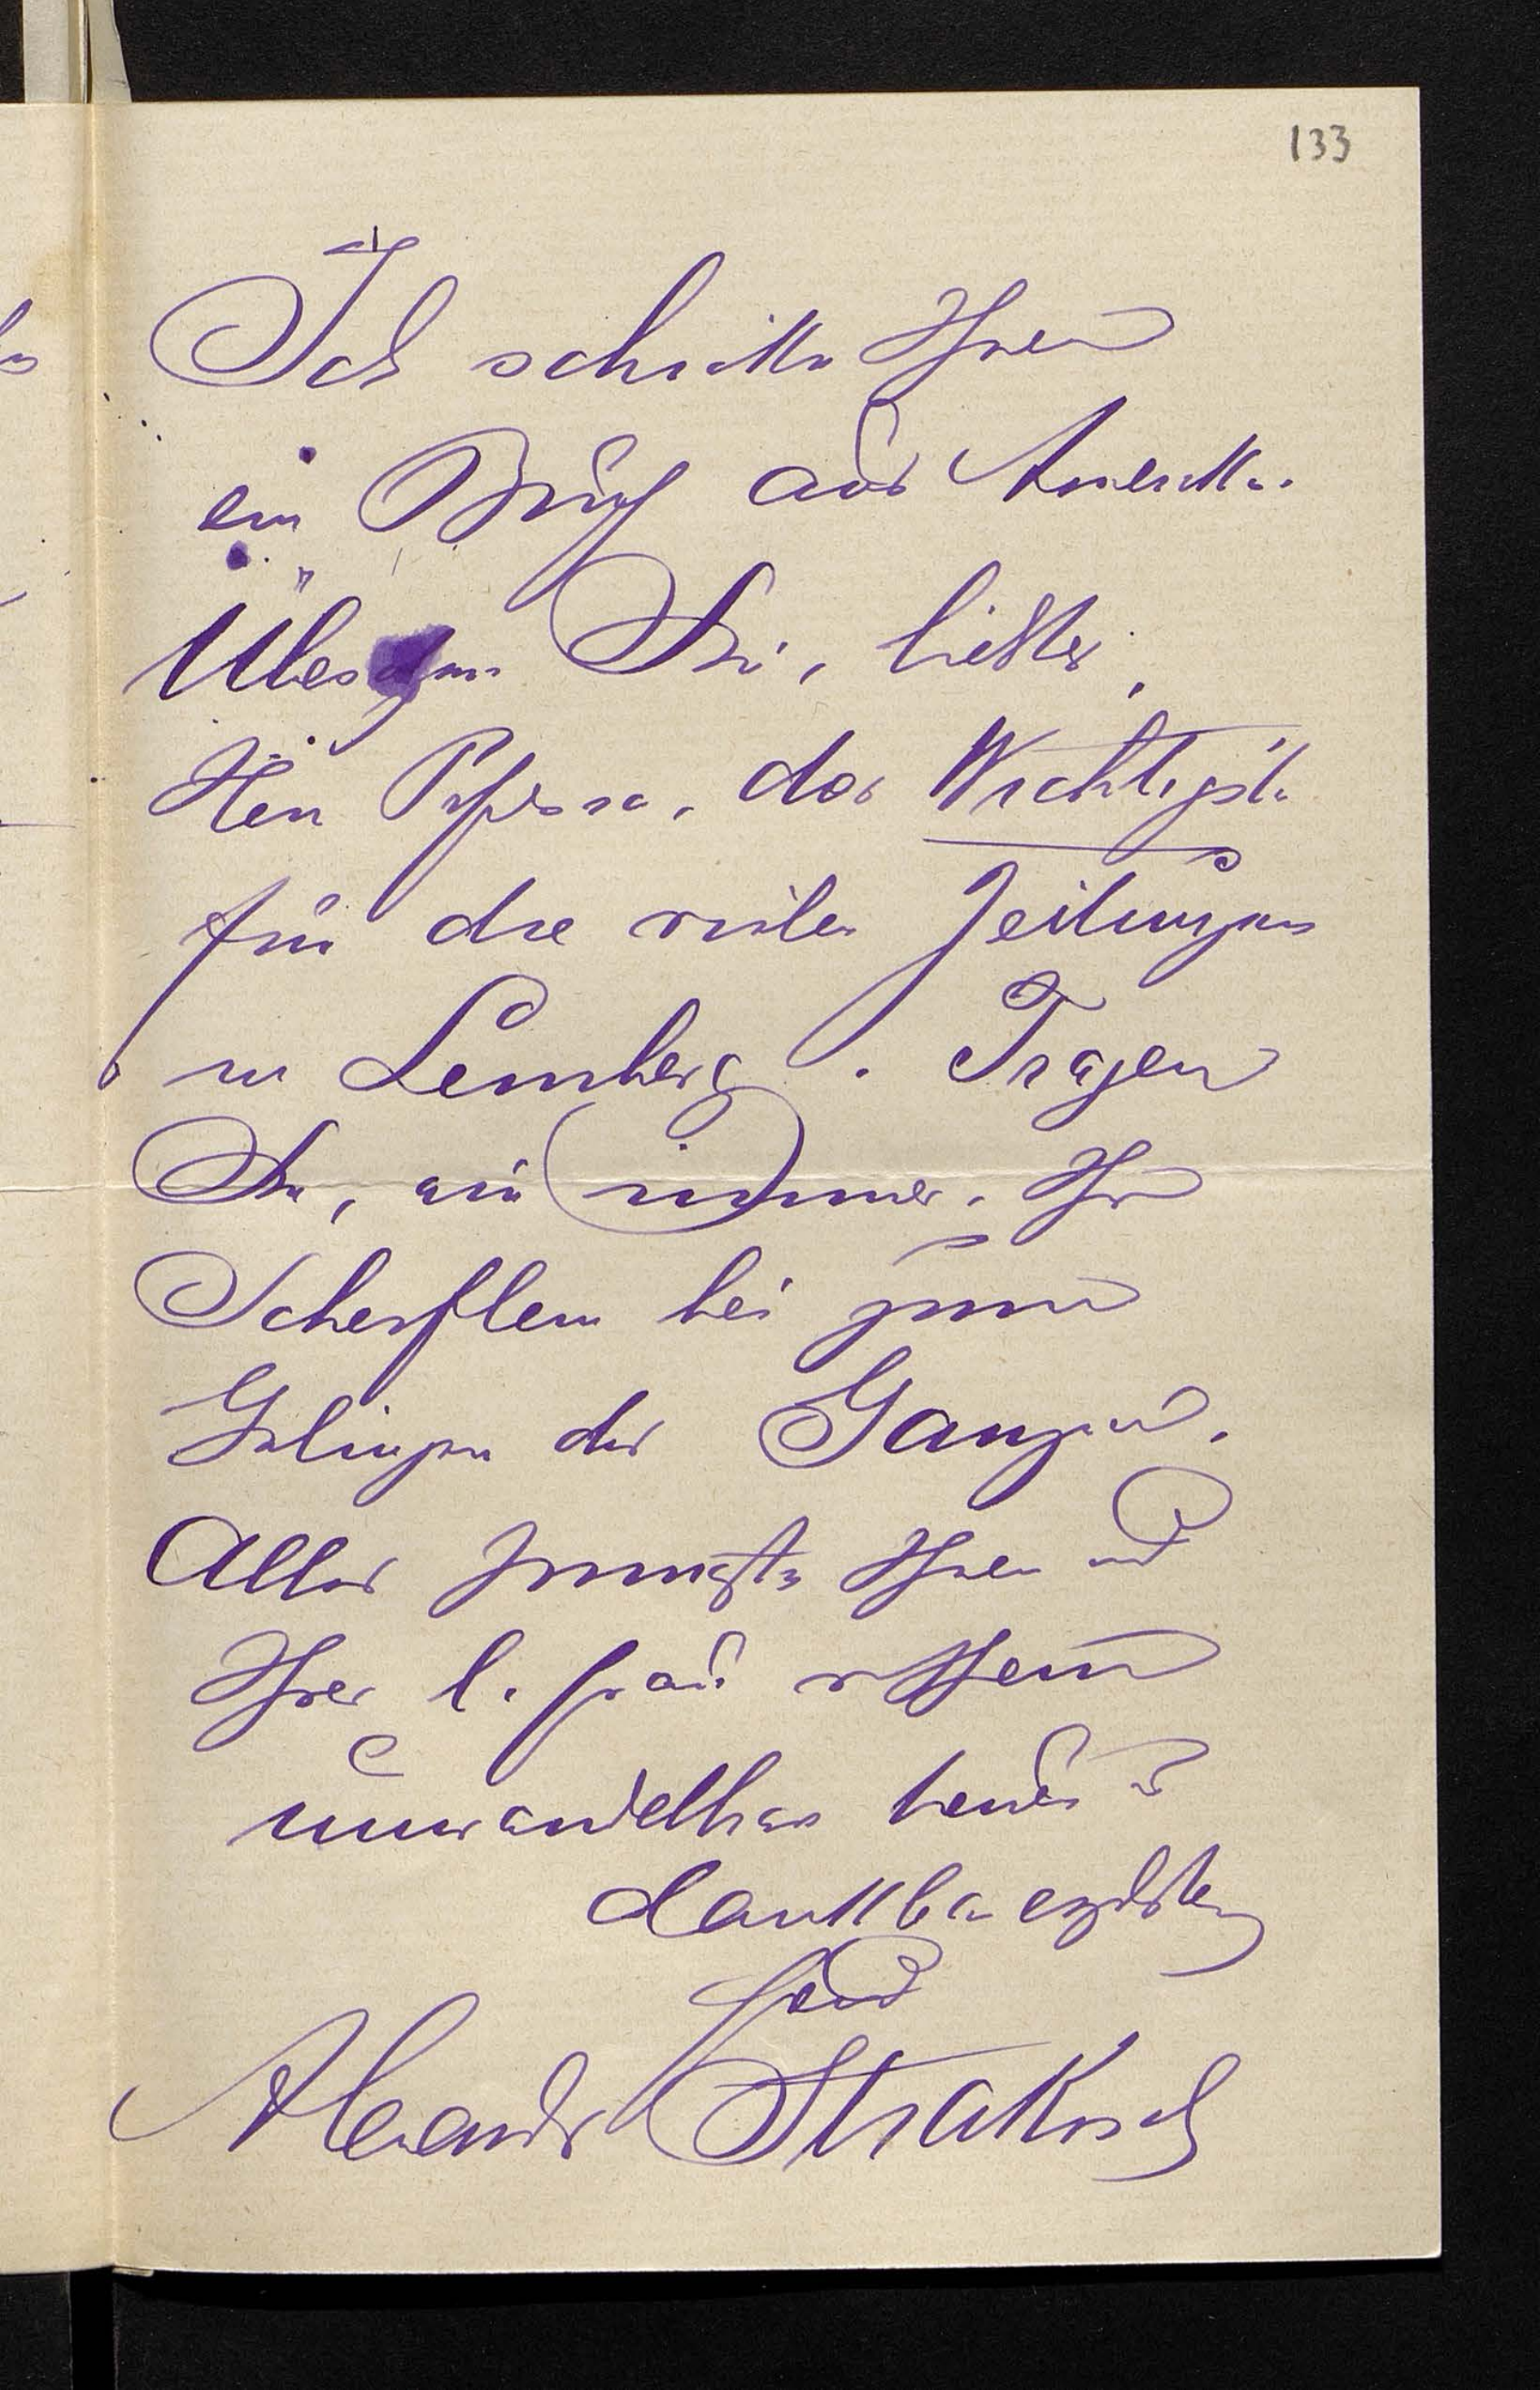 133
Ich schicke Ihnen
ein Buch aus Amerika.
Übersetzen Sie, liebster
Herr Professor, das Wichtigste
für die vielen Zeitungen
in Lemberg. Tragen
Sie, wie immer, Ihr
Scherflein bei zum
Gelingen des Ganzen.
Alles Innigste Ihnen und
Ihrer l. Frau von Ihrem
unwandelbar treuen u
dankbar ergebensten
Freund
Alexander Strakosch